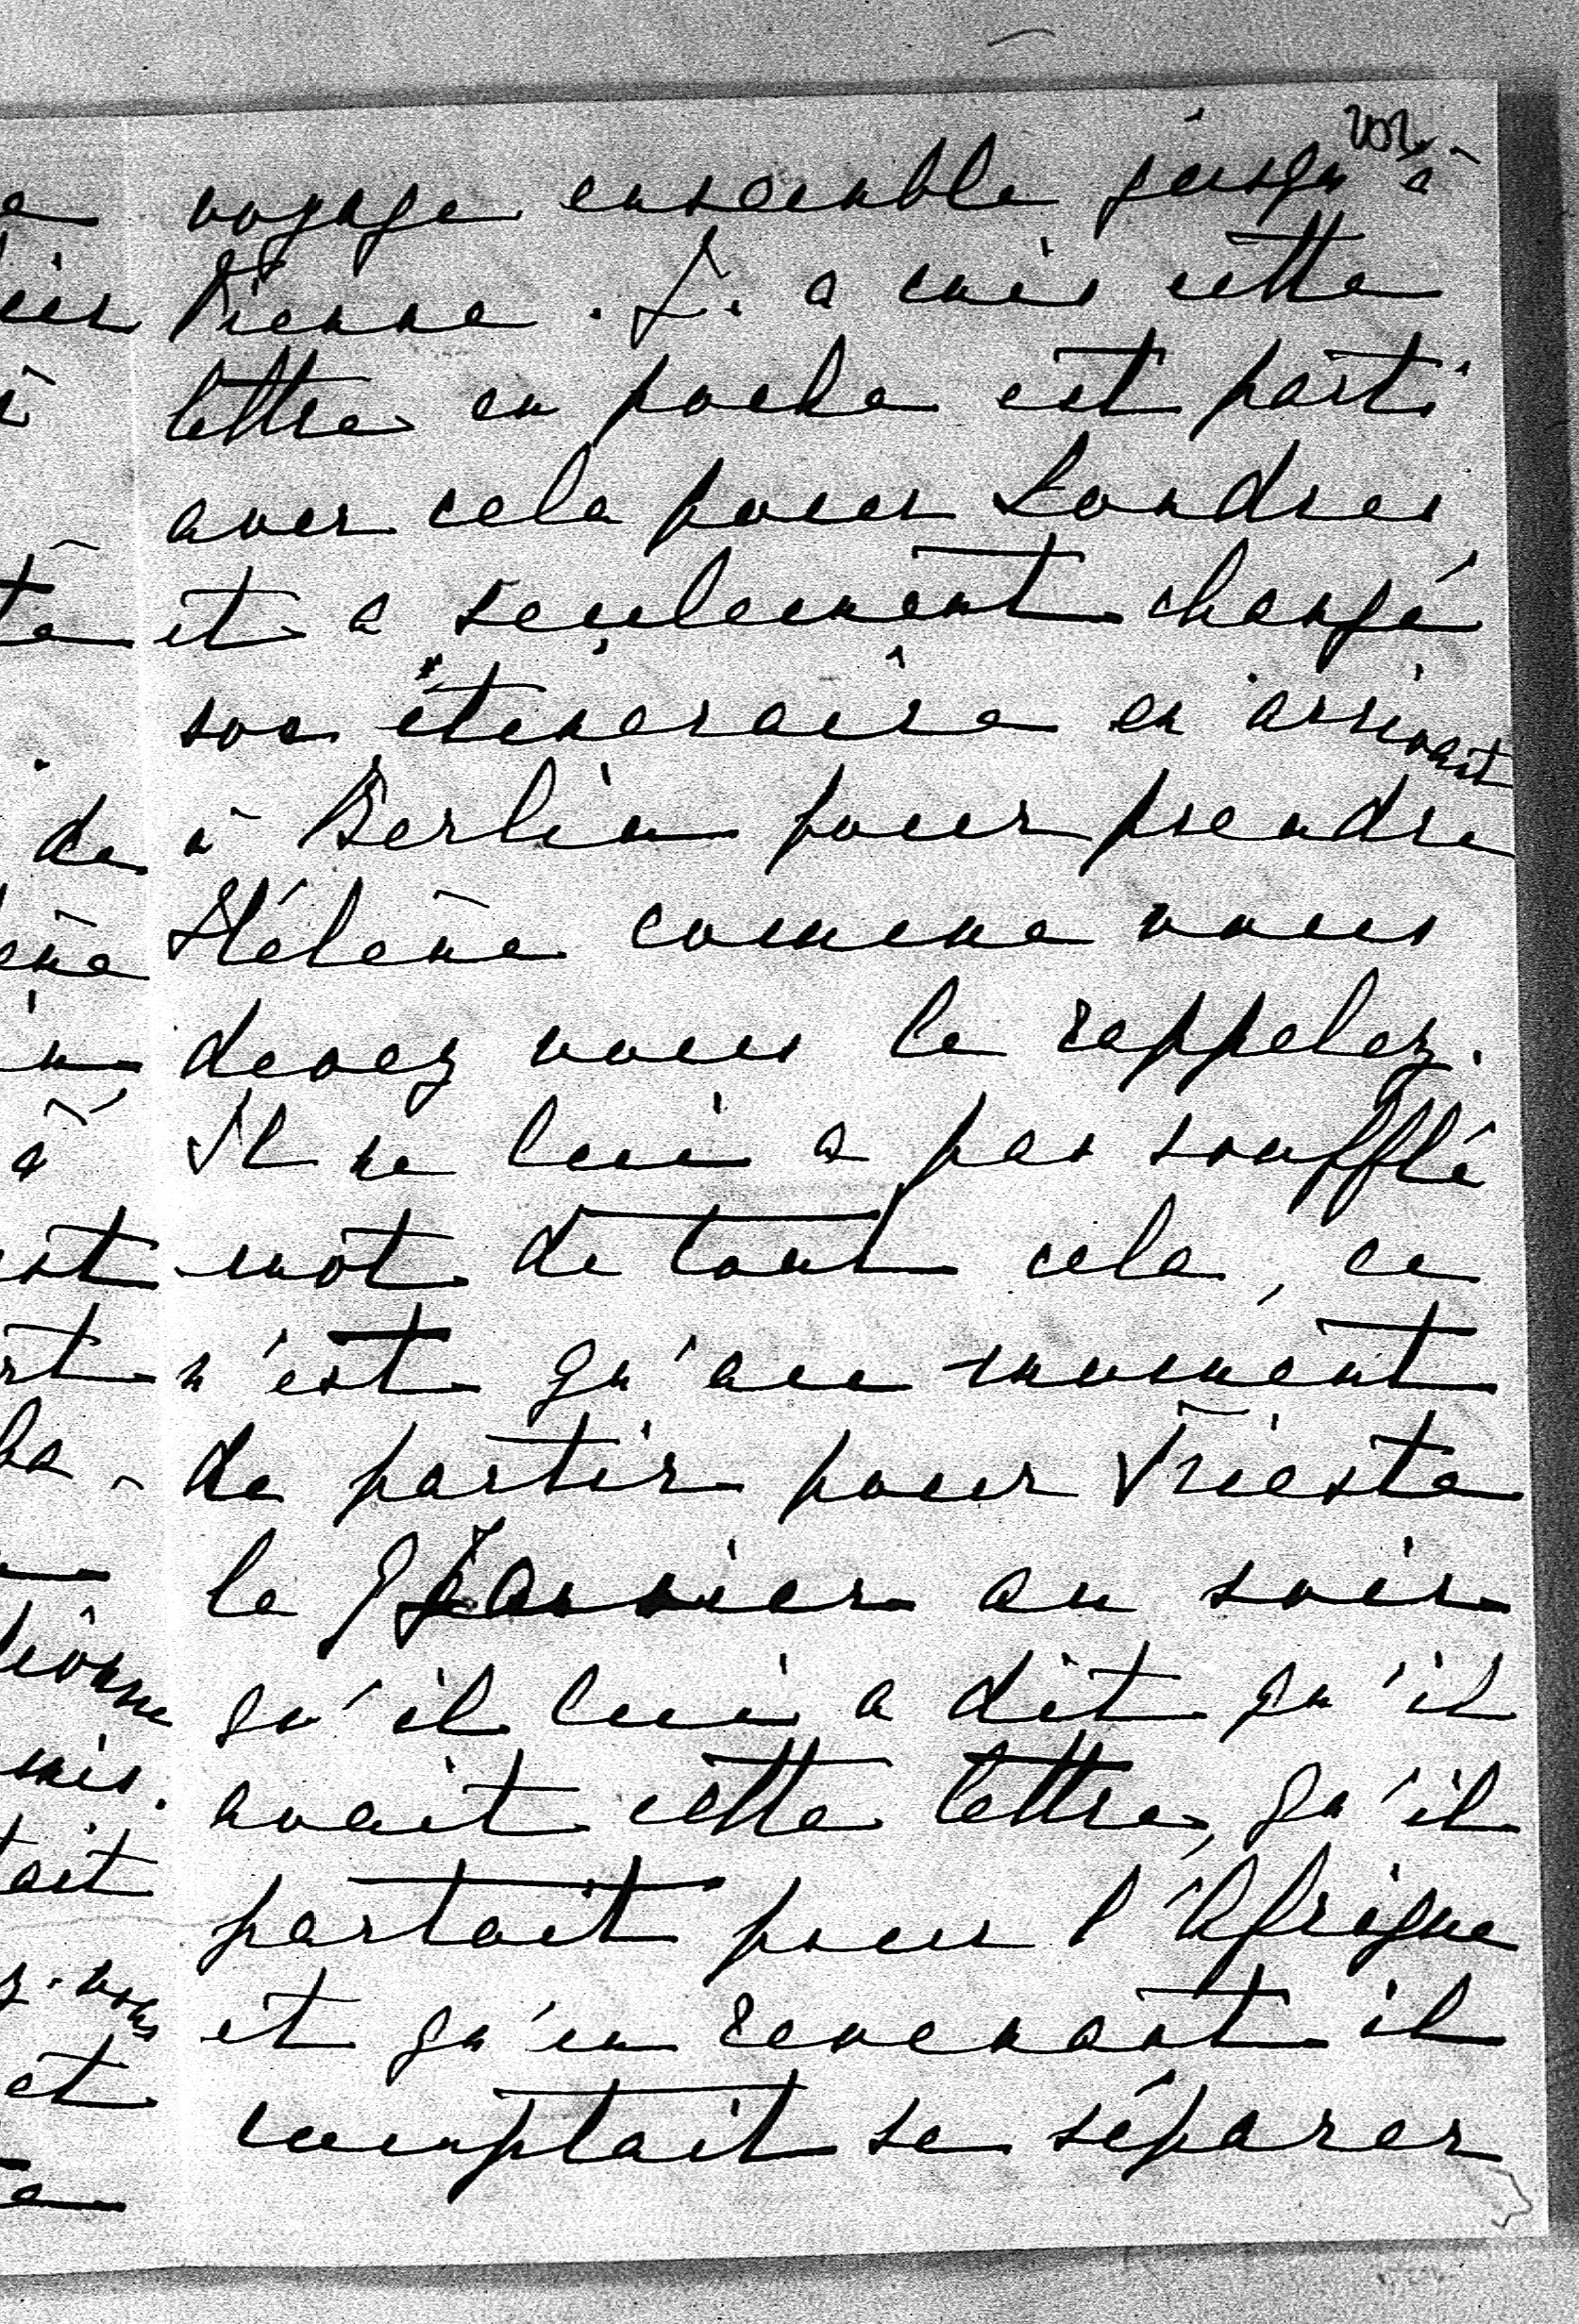 202
voyage ensemble jusqu'à
Vienne. L. a mis cette
lettre en poche est parti
avec cela pour Londres
et a seulement changé
son itineraire en arrivant
à Berlin pour prendre
Hélène comme vous
devez vous le rappelez.
Il ne lui a pas soufflé
mot de tout cela, ce
n'est qu'au moment
de partir pour Trieste
le Janvier au soir
qu'il lui a dit qu'il
avait cette lettre, qu'il
partait pour l'Afrique
et qu'en revenant il
comptait se séparer